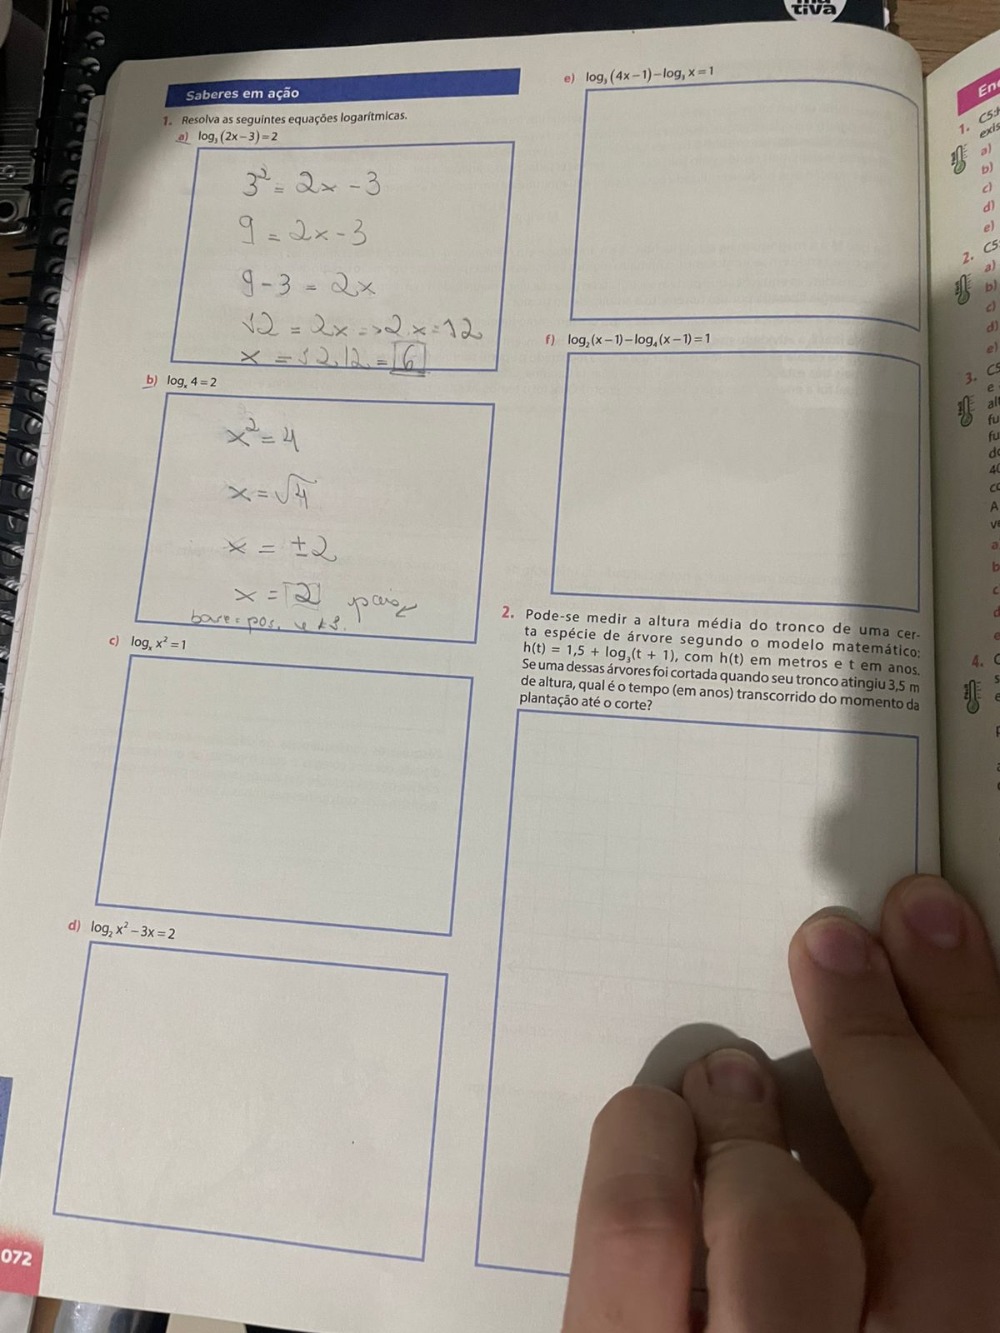 tiva
Saberes em ação
1. Resolva as seguintes equações logarítmicas.
a) log₃ (2x – 3) = 2
3² = 2x - 3
9 = 2x - 3
9 - 3 = 2x
12 = 2x => 2x = 12
x = 12/2 = 6
b) logₓ 4 = 2
x² = 4
x = √4
x = ±2
x = 2
base = pos.
c) logₓ x² = 1
d) log₂ x² – 3x = 2
072
e) log₃ (4x – 1) – log₃ x = 1
f) log₂ (x – 1) – log₄ (x – 1) = 1
2. Pode-se medir a altura média do tronco de uma cer-
ta espécie de árvore segundo o modelo matemático:
h(t) = 1,5 + log₃(t + 1), com h(t) em metros e t em anos.
Se uma dessas árvores foi cortada quando seu tronco atingiu 3,5 m
de altura, qual é o tempo (em anos) transcorrido do momento da
plantação até o corte?
1.
a)
b)
c)
d)
e)
2. C5
a)
b)
c)
d)
e)
3. C5
e
4.